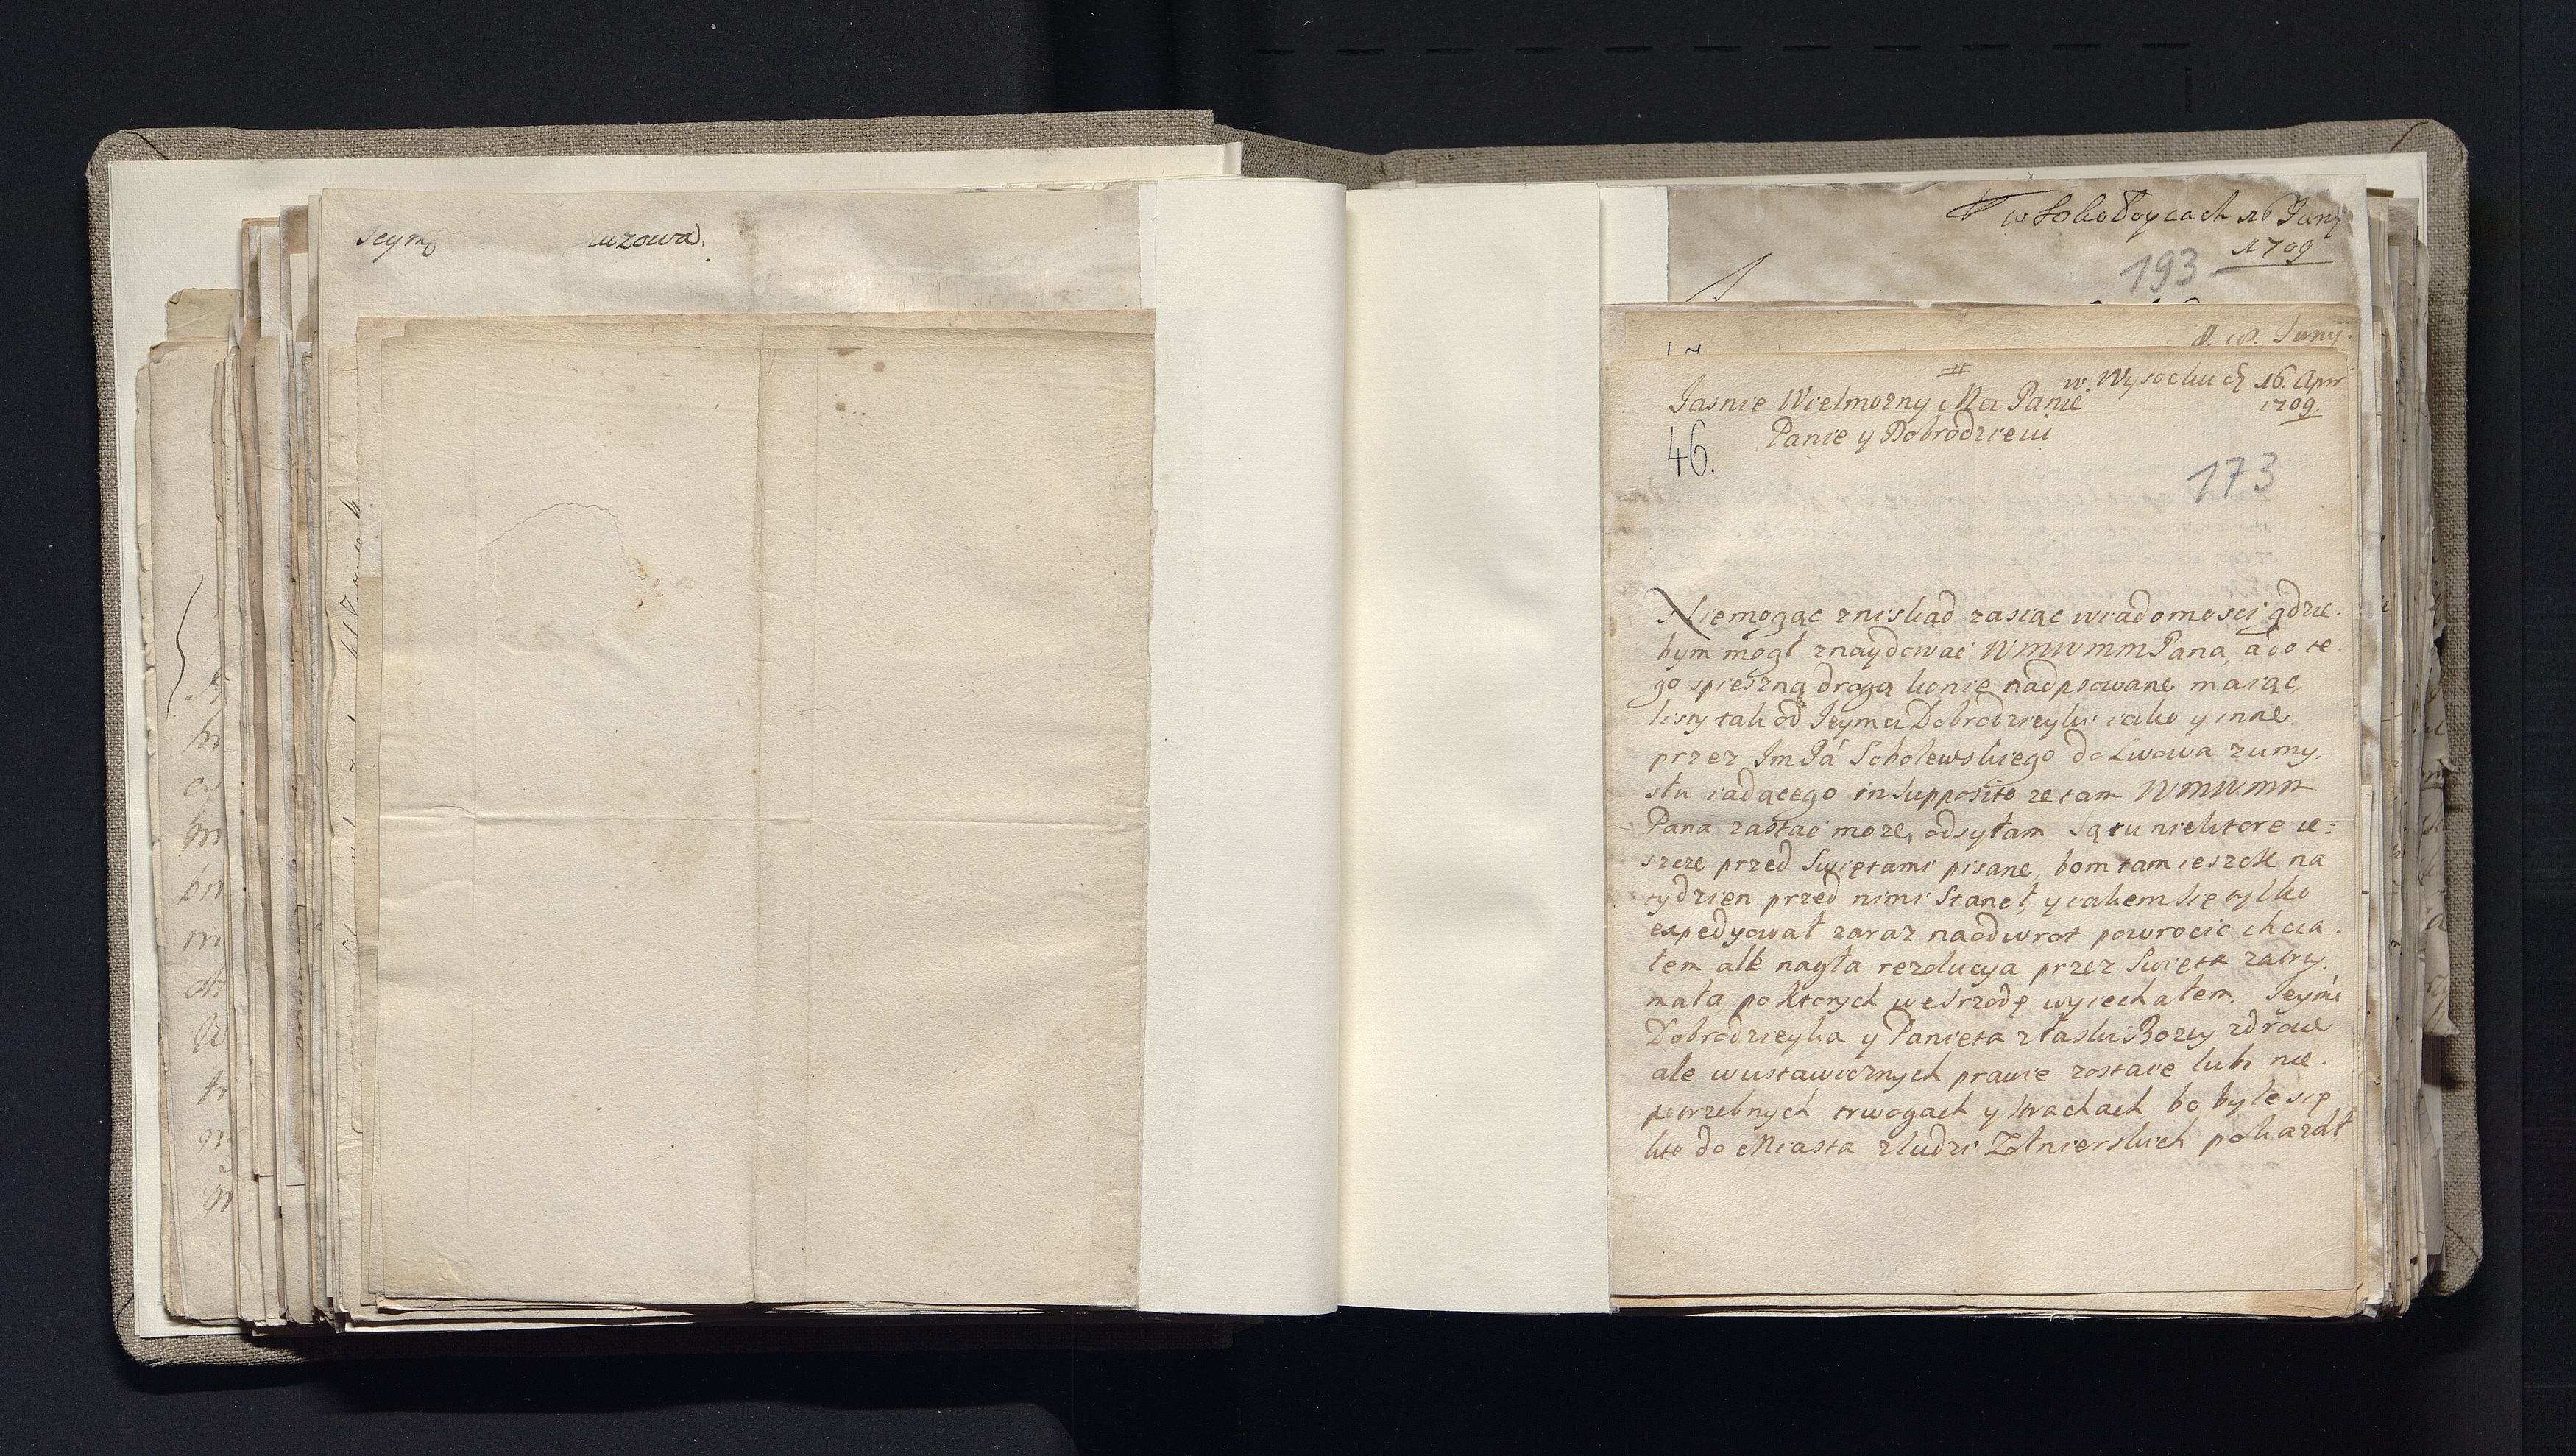 Jeym
w Sokołowcach 16 Juny
1709
193
18. Juny
w. Wysocku d 16. Apr
1709.
Jasnie Wielmozny Mci Panie
Panie y Dobrodzieiu
46.
173
Niemogąc zniskąd zasiąc wiadomosci gdzie.
bym mogł znaydować WMWMMPana, a do te
go spieszną drogą konie nadpsowane maiąc,
listy tak od Jeymci Dobrodzieyki iako y inne
przez Jm Pá Scholewskiego do Lwowa zumy.
słu iadącego in supposito ze tam WMWMM
Pana zastać moze, odsyłam, Są tu niektore ie:
szcze przed Swiętami pisane, bom tam ieszcze na
tydzien przed nimi Staneł, y iakem się tylko
expedyował zaraz naodwrot powrocić chcia.
łem ale nagła rezolucya przez Swięta zatrzy.
mała, po ktorych we Srzodę wyiechałem. Jeymć
Dobrodzieyka y Panięta z łaski Bozey zdrowe
ale wustawicznych prawie zostaie lubo nie.
potrzebnych trwogach y strachach, bo byle się
kto do Miasta z ludzi Zołnierskich pokazał